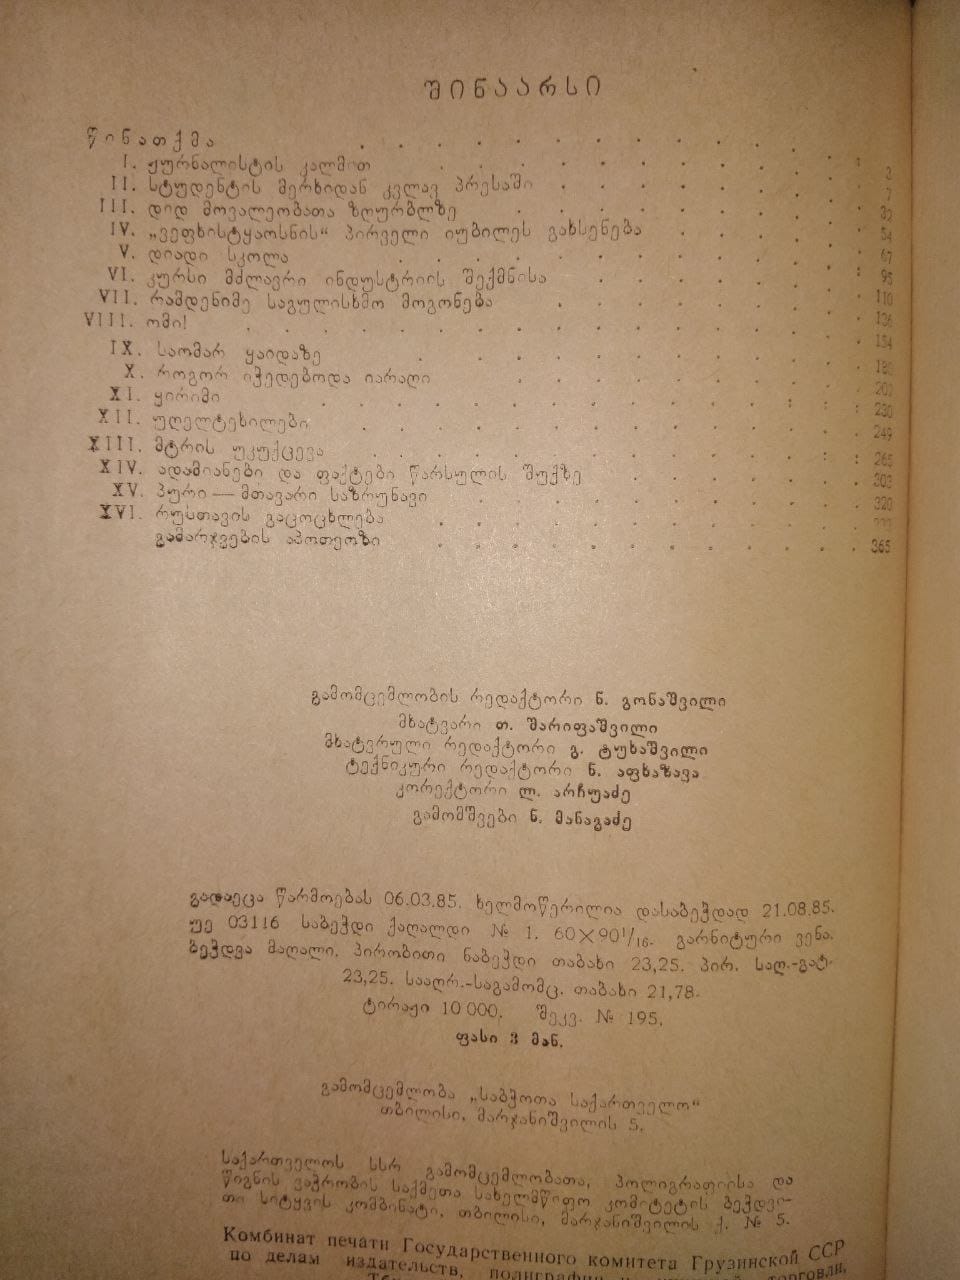 შინაარსი
წინათქმა . . . . . . . . . . . . 2
I. ჟურნალისტის კალმით . . . . . . . . . . 7
II. სტუდენტის მერხიდან კვლავ პრესაში . . . . . . . . 32
III. დიდ მოვალეობათა ზღურბლზე . . . . . . . . 54
IV. „ვეფხისტყაოსნის“ პირველი იუბილეს გახსენება . . . . . . 67
V. დიადი სკოლა . . . . . . . . . . . 95
VI. კურსი მძლავრი ინდუსტრიის შექმნისა . . . . . . . 110
VII. რამდენიმე საგულისხმო მოგონება . . . . . . . . 136
VIII. ომი! . . . . . . . . . . . . . . 154
IX. საომარ ყაიდაზე . . . . . . . . . .
X. როგორ იჭედებოდა იარაღი . . . . . . . . 202
XI. ყირიმი . . . . . . . . . . . . 230
XII. უღელტეხილები . . . . . . . . . . . 249
XIII. მტრის უკუქცევა . . . . . . . . . . . 265
XIV. ადამიანები და ფაქტები წარსულის შუქზე . . . . . . 303
XV. პური — მთავარი საზრუნავი . . . . . . . . . 320
XVI. რუსთავის გაცოცხლება . . . . . . . . . .
გამარჯვების აპოთეოზი . . . . . . . . . . 365
გამომცემლობის რედაქტორი ნ. გონაშვილი
მხატვარი თ. შარიფაშვილი
მხატვრული რედაქტორი გ. ტუხაშვილი
ტექნიკური რედაქტორი ნ. აფხაზავა
კორექტორი ლ. არჩუაძე
გამომშვები ნ. მანაგაძე
გადაეცა წარმოებას 06.03.85. ხელმოწერილია დასაბეჭდად 21.08.85.
უე 03116 საბეჭდი ქაღალდი № 1. 60×90¹/₁₆. გარნიტური ვენა.
ბეჭდვა მაღალი. პირობითი ნაბეჭდი თაბახი 23,25. პირ. საღ.-გატ.
23,25. სააღრ.-საგამომც. თაბახი 21,78.
ტირაჟი 10 000. შეკვ. № 195.
ფასი 3 მან.
გამომცემლობა „საბჭოთა საქართველო“
თბილისი, მარჯანიშვილის 5.
საქართველოს სსრ გამომცემლობათა, პოლიგრაფიისა და
წიგნის ვაჭრობის საქმეთა სახელმწიფო კომიტეტის ბეჭდვი-
თი სიტყვის კომბინატი, თბილისი, მარჯანიშვილის ქ. № 5.
Комбинат печати Государственного комитета Грузинской ССР
по делам издательств, полиграфии и торговли,